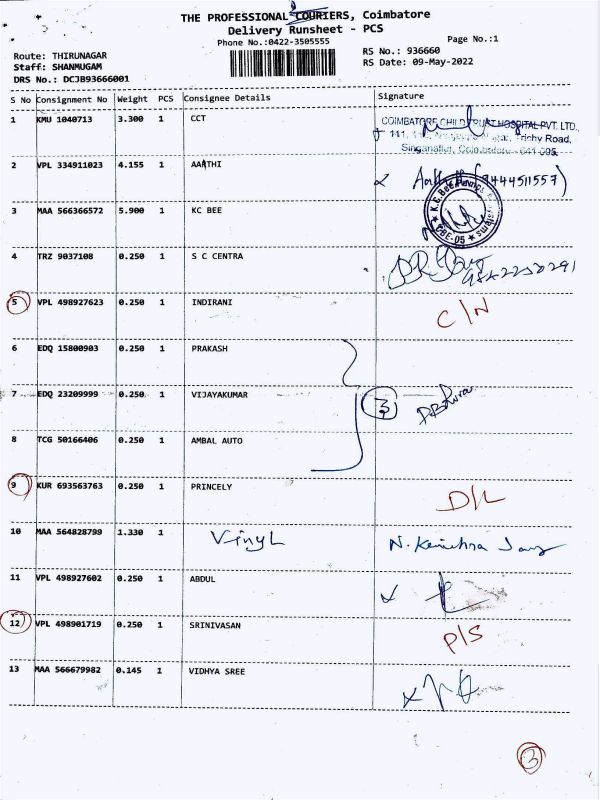 THE PROFESSIONAL COURIERS, Coimbatore
Delivery Runsheet - PCS
Phone No.:0422-3505555
Page No.:1
Route: THIRUNAGAR
Staff: SHANMUGAM
DRS No.: DCJB93666001
RS No.: 936660
RS Date: 09-May-2022
S No Consignment No Weight PCS Consignee Details Signature
1 KMU 1040713 3.300 1 CCT
COIMBATORE CHILD TRUST HOSPITAL PVT. LTD.,
Trichy Road,
Singanallur, Coimbatore - 641 005.
2 VPL 334911023 4.155 1 AARTHI
(9444511557)
3 MAA 566366572 5.900 1 KC BEE
K.C.Bee Pumps Systems
CBE-05
4 TRZ 9037108 0.250 1 S C CENTRA
5 VPL 498927623 0.250 1 INDIRANI C/N
6 EDQ 15800903 0.250 1 PRAKASH
7 EDQ 23209999 0.250 1 VIJAYAKUMAR 3
8 TCG 50166406 0.250 1 AMBAL AUTO
9 KUR 693563763 0.250 1 PRINCELY D/L
10 MAA 564828799 1.330 1 Vinyl
11 VPL 498927602 0.250 1 ABDUL
12 VPL 498901719 0.250 1 SRINIVASAN P/S
13 MAA 566679982 0.145 1 VIDHYA SREE
3